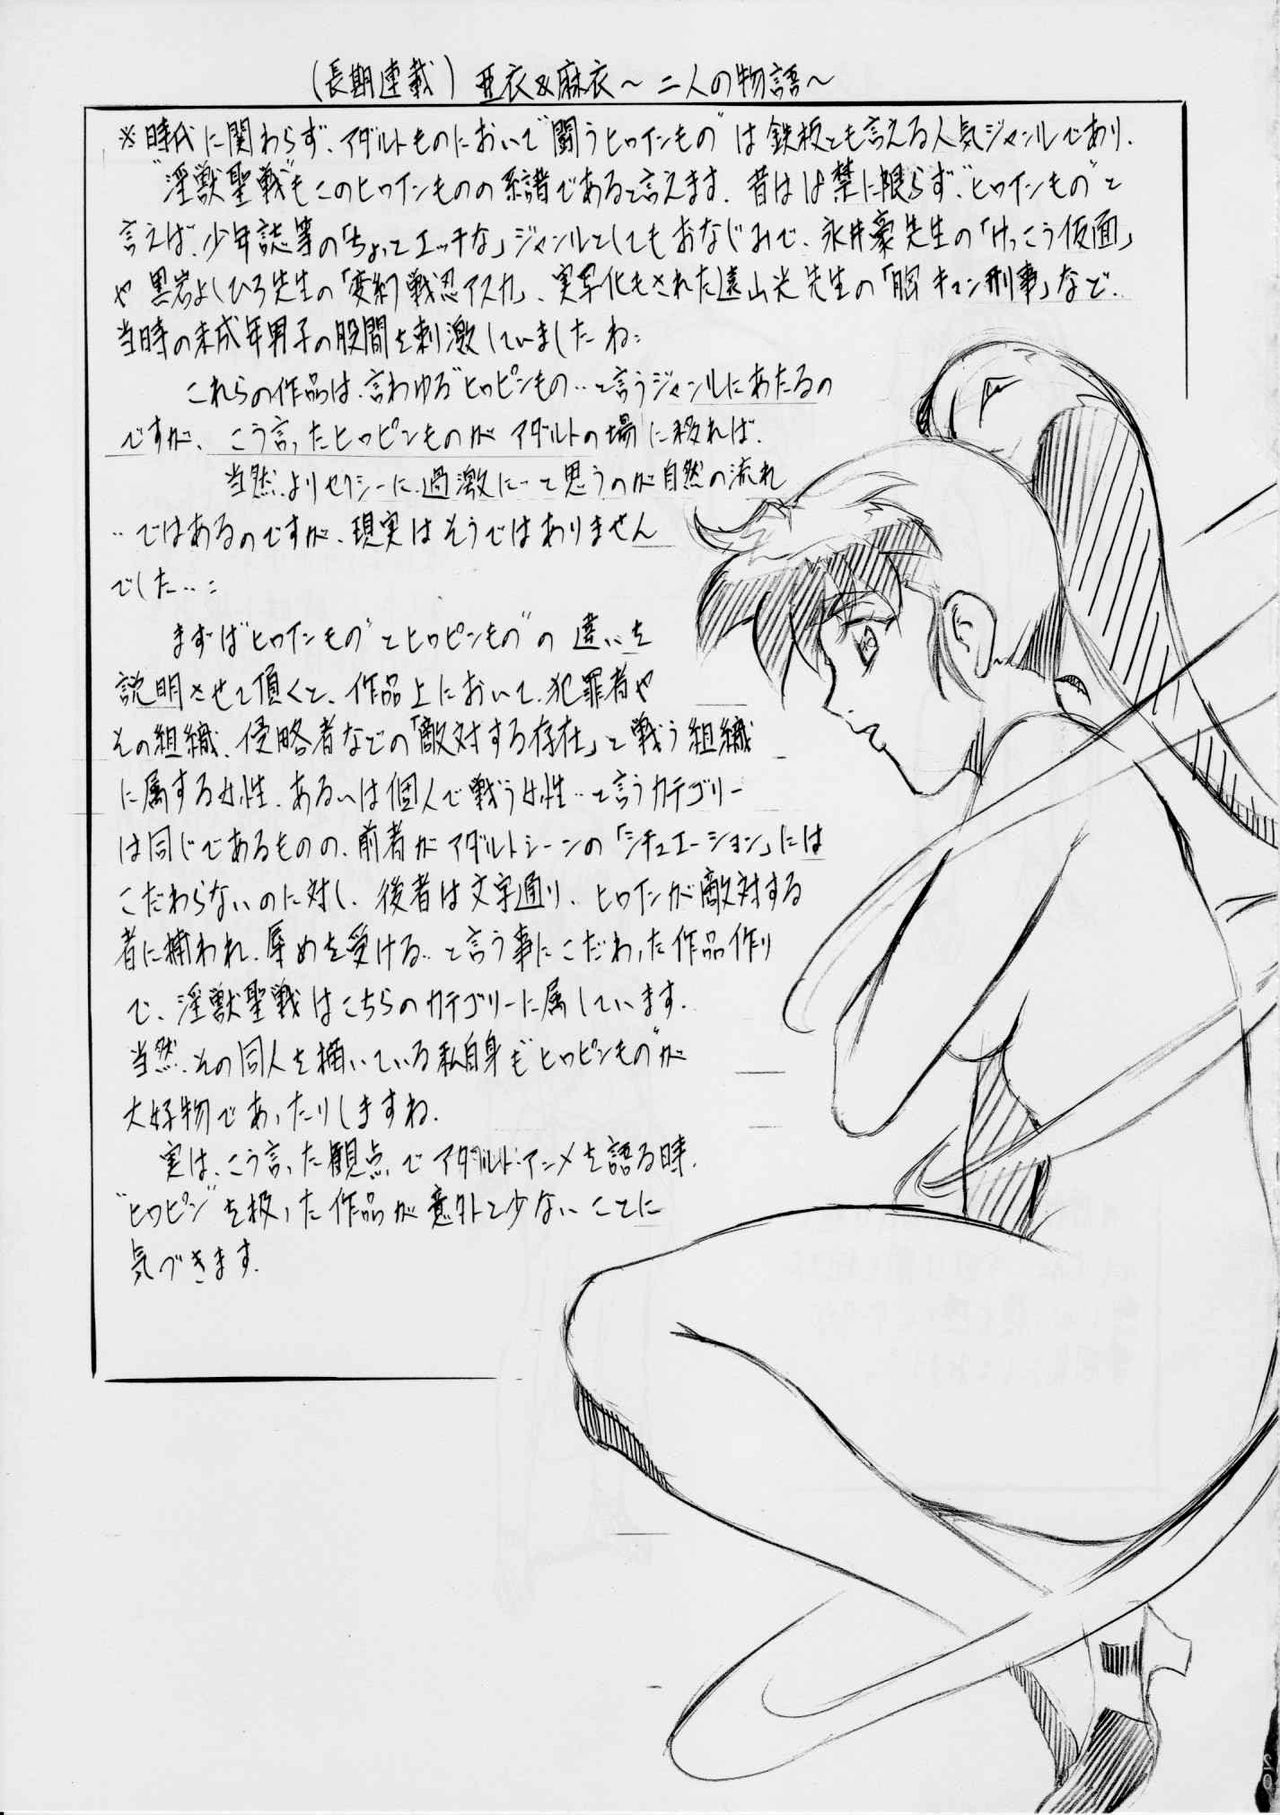 (長期連載) 亜衣&麻衣～二人の物語～
※時代に関わらず、アダルトものにおいて"闘うヒロインもの"は鉄板とも言える人気ジャンルであり、
"淫獣聖戦"もこのヒロインものの系譜であると言えます。昔は18禁に限らず、"ヒロインもの"と
言えば、少年誌等の「ちょっとエッチな」ジャンルとしてもおなじみで、永井豪先生の「けっこう仮面」
や黒岩よしひろ先生の「変幻戦忍アスカ」、実写化もされた遠山光先生の「胸キュン刑事」など‥
当時の未成年男子の股間を刺激していましたね:
これらの作品は、言わゆる"ヒロピンもの‥と言うジャンルにあたるの
ですが、こう言ったヒロピンものがアダルトの場に移れば、
当然、よりセクシーに、過激に‥と思うのが自然の流れ
‥ではあるのですが、現実はそうではありません
でした‥:
まずは"ヒロインもの"とヒロピンもの"の違いを
説明させて頂くと、作品上において、犯罪者や
その組織、侵略者などの「敵対する存在」と戦う組織
に属する女性、あるいは個人で戦う女性‥と言うカテゴリー
は同じであるものの、前者がアダルトシーンの「シチュエーション」には
こだわらないのに対し、後者は文字通り、ヒロインが敵対する
者に捕われ、辱めを受ける‥と言う事にこだわった作品作り
で、淫獣聖戦はこちらのカテゴリーに属しています。
当然、その同人を描いている私自身も"ヒロピンもの"が
大好物であったりしますね。
実は、こう言った観点でアダルト・アニメを語る時、
"ヒロピン"を扱った作品が意外と少ないことに
気づきます。